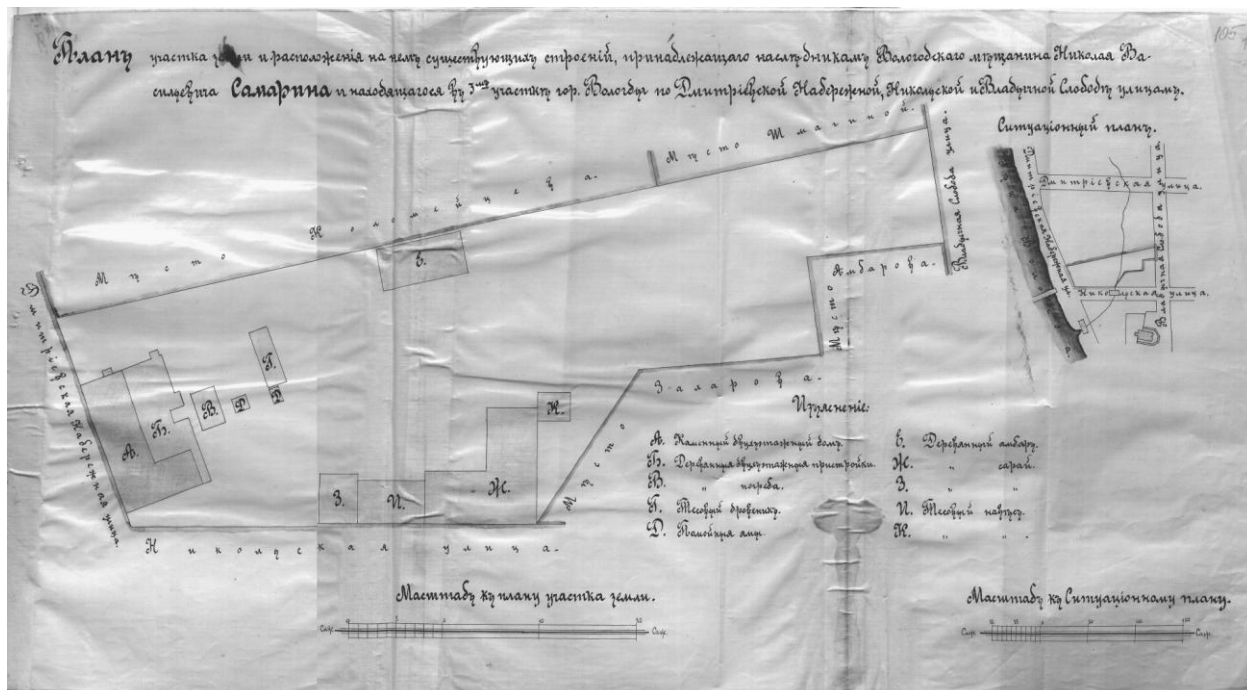 195
Планъ участка земли и расположенія на немъ существующихъ строеній, принадлежащаго наслѣдникамъ Вологодскаго мѣщанина Николая Ва-
сильевича Самарина и находящагося въ 3мъ участкѣ гор. Вологды по Дмитріевской Набережной, Никольской и Владычной Слободѣ улицамъ.
Ситуаціонный планъ.
Мѣсто Шмагиной.
Мѣсто Коломейцева.
Владычная Слобода улица.
Дмитріевская улица.
Дмитріевская Набережная ул.
Никольская улица.
Владычная Слобода улица.
Мѣсто Амбарова.
Е.
Дмитріевская Набережная улица.
А.
Б.
В.
Д.
Г.
Д.
Мѣсто Захарова.
К.
З.
И.
Ж.
Никольская улица.
Изъясненіе:
А. Каменный двухъэтажный домъ.
Б. Деревянныя двухъэтажныя пристройки.
В. „ погреба.
Г. Тесовый дровеникъ.
Д. Помойныя ямы.
Е. Деревянный амбаръ.
Ж. „ сарай.
З. „ „
И. Тесовый навѣсъ.
К. „ „.
Масштабъ къ плану участка земли.
Саж. Саж.
Масштабъ къ Ситуаціонному плану.
Саж. Саж.